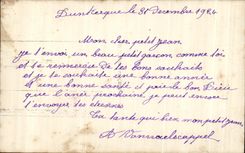 Dunkerque le 31 Decembre 1924
Mon cher petit jean
je t'envoi un beau petit garçon comme toi
et te remercie de tes bons souhaits
et je te souhaite une bonne année
et une bonne santé je prie le bon Dieu
que l'année prochaine je peut encore
t'envoyer tes étrennes
Ta tante qui bien mon petit jean